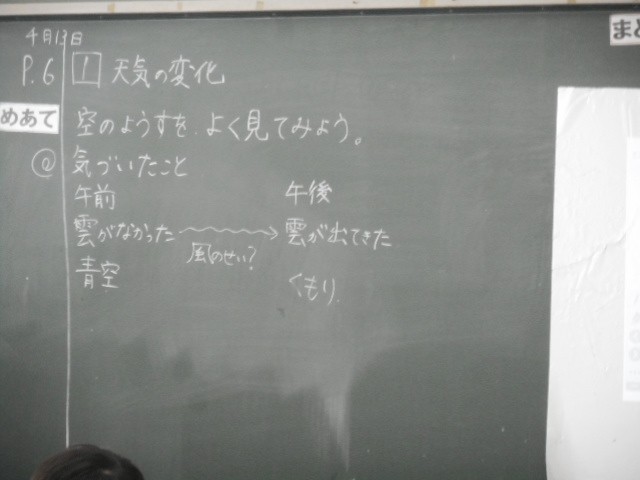 4月13日
P.6 1 天気の変化
めあて 空のようすを、よく見てみよう。
気づいたこと
午前 午後
雲がなかった 雲が出てきた
風のせい?
青空 くもり
まと